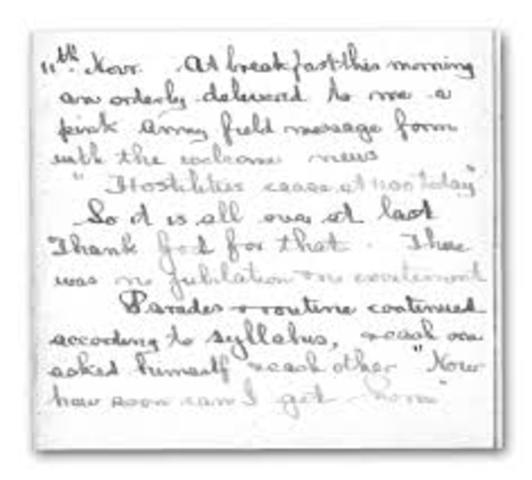 11th Novr. At breakfast this morning
an orderly delivered to me a
pink Army field message form
with the welcome news
"Hostilities cease at 1100 today"
So it is all over at last
Thank God for that. There
was no jubilation & no excitement
Parades & routine continued
according to syllabus, & each one
asked himself & each other "Now
how soon can I get home"